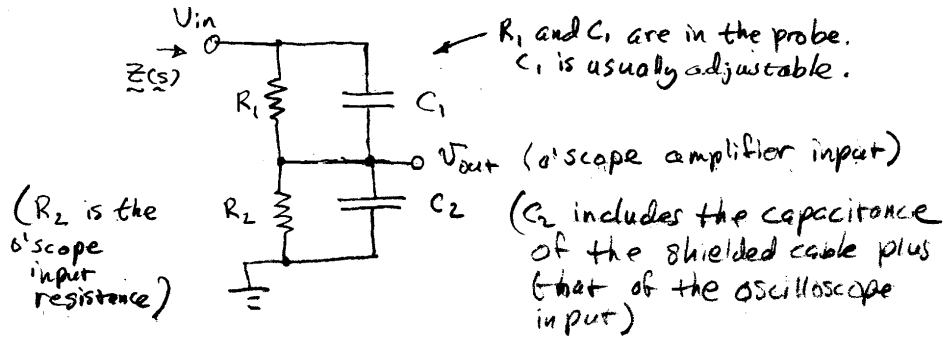 Vin
Z(s)
R₁ and C₁ are in the probe.
C₁ is usually adjustable.
R₁
C₁
Vout (o'scope amplifier input)
(R₂ is the
o'scope
input
resistance)
R₂
C₂
(C₂ includes the capacitance
of the shielded cable plus
that of the oscilloscope
input)